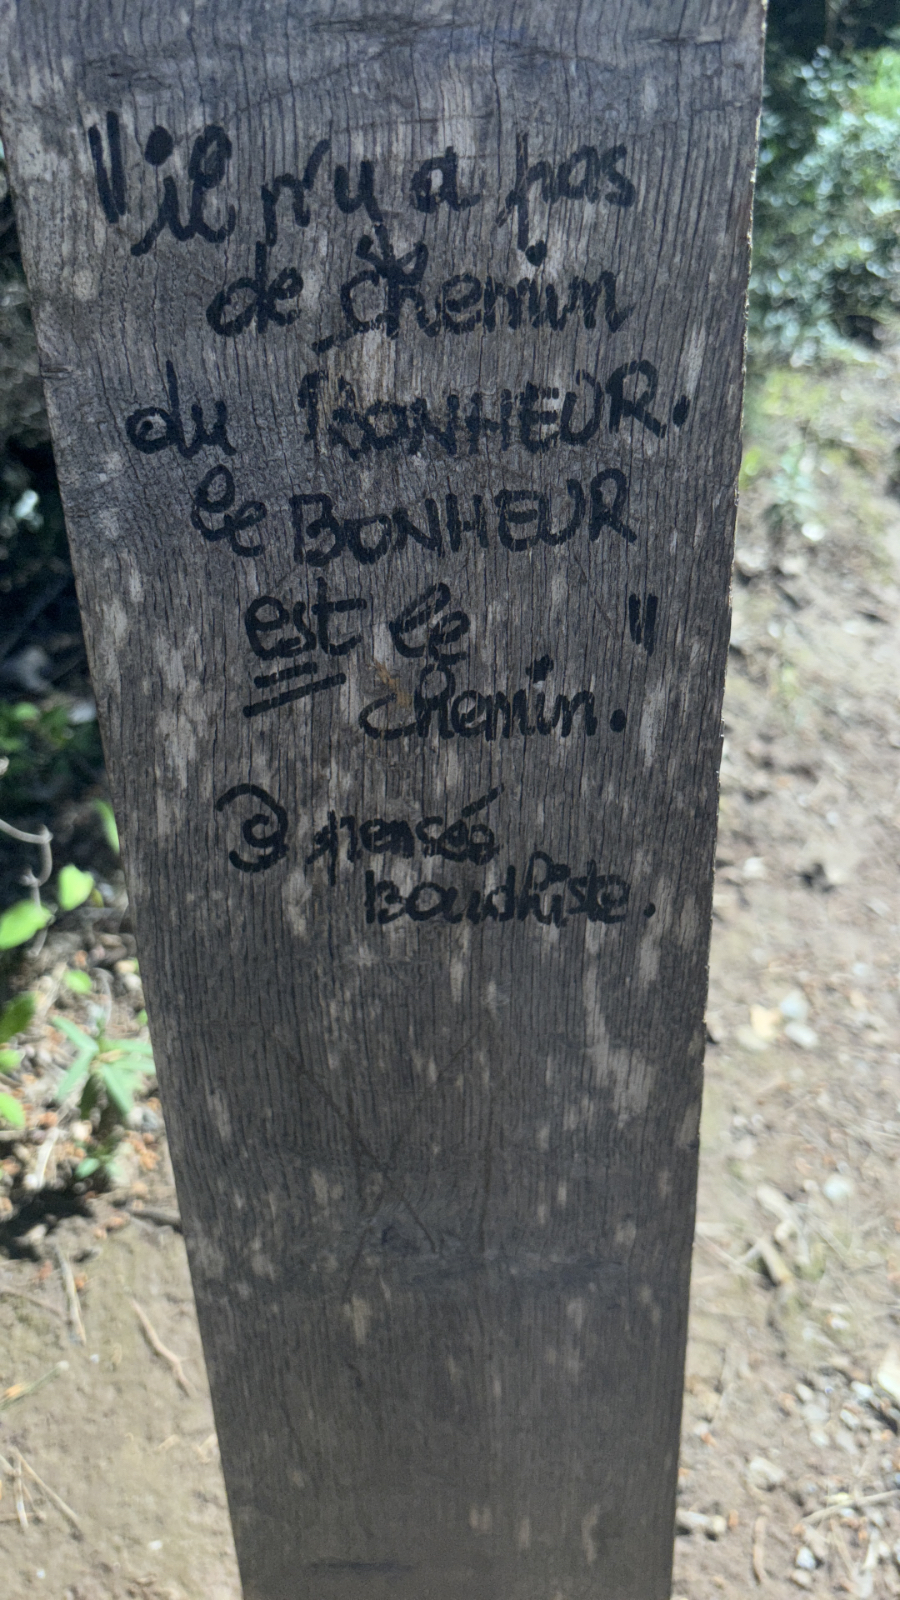 "il n'y a pas
de chemin
du BONHEUR.
le BONHEUR
est le "
chemin.
pensée
Boudhiste.